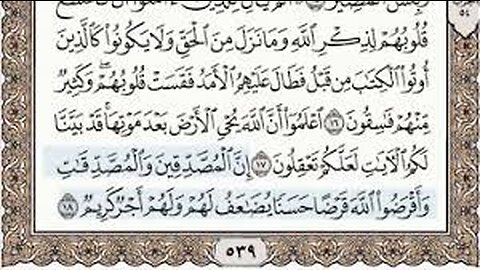 قُلُوبُهُمْ لِذِكْرِ ٱللَّهِ وَمَا نَزَلَ مِنَ ٱلْحَقِّ وَلَا يَكُونُوا۟ كَٱلَّذِينَ
أُوتُوا۟ ٱلْكِتَٰبَ مِن قَبْلُ فَطَالَ عَلَيْهِمُ ٱلْأَمَدُ فَقَسَتْ قُلُوبُهُمْ ۖ وَكَثِيرٌ
مِّنْهُمْ فَٰسِقُونَ ١٦ ٱعْلَمُوٓا۟ أَنَّ ٱللَّهَ يُحْىِ ٱلْأَرْضَ بَعْدَ مَوْتِهَا ۚ قَدْ بَيَّنَّا
لَكُمُ ٱلْءَايَٰتِ لَعَلَّكُمْ تَعْقِلُونَ ١٧ إِنَّ ٱلْمُصَّدِّقِينَ وَٱلْمُصَّدِّقَٰتِ
وَأَقْرَضُوا۟ ٱللَّهَ قَرْضًا حَسَنًا يُضَٰعَفُ لَهُمْ وَلَهُمْ أَجْرٌ كَرِيمٌ ١٨
٥٣٩